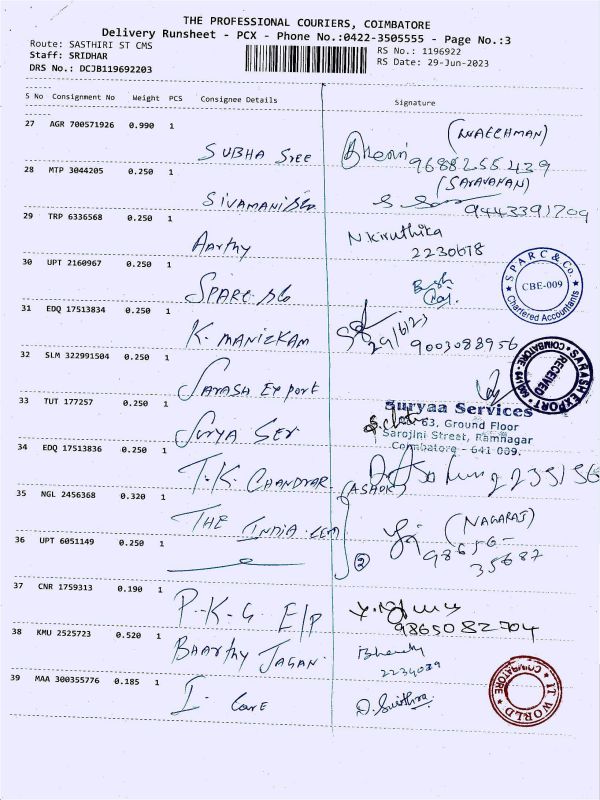 THE PROFESSIONAL COURIERS, COIMBATORE
Delivery Runsheet - PCX - Phone No.:0422-3505555 - Page No.:3
Route: SASTHIRI ST CMS
Staff: SRIDHAR
DRS No.: DCJB119692203
RS No.: 1196922
RS Date: 29-Jun-2023
S No Consignment No Weight PCS Consignee Details Signature
27 AGR 700571926 0.990 1
SUBHA Sree
(WATCHMAN)
9688255439
28 MTP 3044205 0.250 1
SIVAMANI
(SARAVANAN)
9443391709
29 TRP 6336568 0.250 1
Aarthy
N Kiruthika
2230678
30 UPT 2160967 0.250 1
SPARC
SPARC & Co.
CBE-009
Chartered Accountants
31 EDQ 17513834 0.250 1
K. MANICKAM
29/6/23 9003088956
32 SLM 322991504 0.250 1
SARASH Export
SARASH EXPORT
RECEIVED
COIMBATORE - 641
33 TUT 177257 0.250 1
SURYA SER
Suryaa Services
63, Ground Floor
Sarojini Street, Ramnagar
Coimbatore - 641 009.
34 EDQ 17513836 0.250 1
T.K. CHANDRAR
(ASHOK)
35 NGL 2456368 0.320 1
THE INDIA CEM
(NAGARAJ)
98656-
35687
36 UPT 6051149 0.250 1
2
37 CNR 1759313 0.190 1
P.K.G E/P
9865082704
38 KMU 2525723 0.520 1
BAARTHY JAGAN.
Bharathy
2234039
39 MAA 300355776 0.185 1
I. Care
D. Suvithra
IT WORLD
COIMBATORE